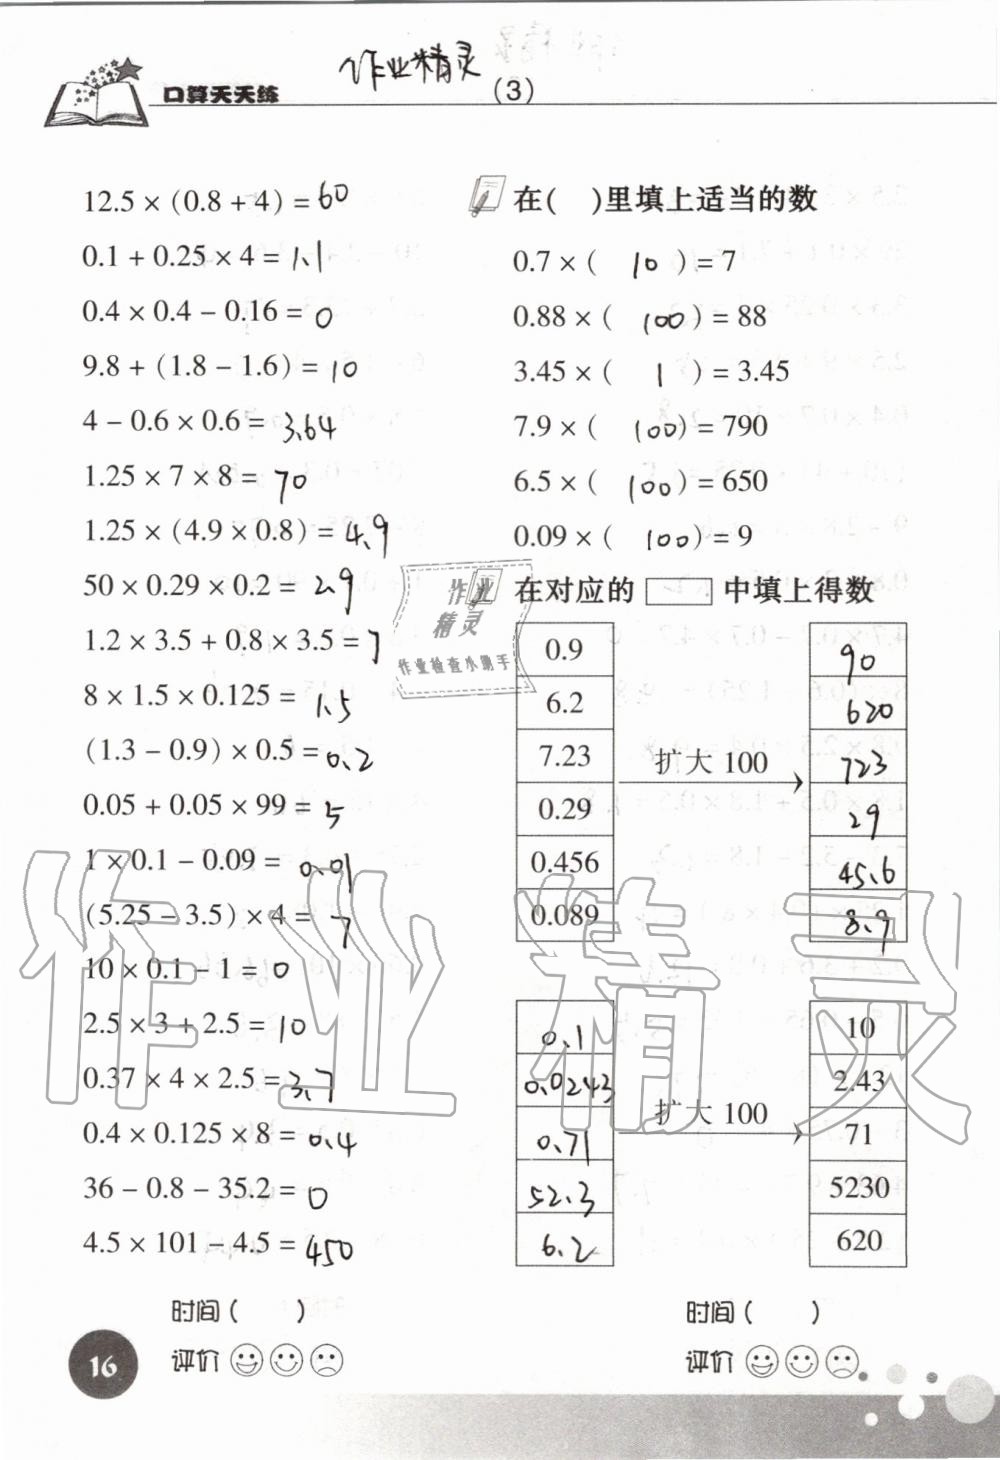 作业精灵
口算天天练
(3)
12.5 × (0.8 + 4) = 60
0.1 + 0.25 × 4 = 1.1
0.4 × 0.4 − 0.16 = 0
9.8 + (1.8 − 1.6) = 10
4 − 0.6 × 0.6 = 3.64
1.25 × 7 × 8 = 70
1.25 × (4.9 × 0.8) = 4.9
50 × 0.29 × 0.2 = 2.9
1.2 × 3.5 + 0.8 × 3.5 = 7
8 × 1.5 × 0.125 = 1.5
(1.3 − 0.9) × 0.5 = 0.2
0.05 + 0.05 × 99 = 5
1 × 0.1 − 0.09 = 0.01
(5.25 − 3.5) × 4 = 7
10 × 0.1 − 1 = 0
2.5 × 3 + 2.5 = 10
0.37 × 4 × 2.5 = 3.7
0.4 × 0.125 × 8 = 0.4
36 − 0.8 − 35.2 = 0
4.5 × 101 − 4.5 = 450
时间( )
评价
在( )里填上适当的数
0.7 × ( 10 ) = 7
0.88 × ( 100 ) = 88
3.45 × ( 1 ) = 3.45
7.9 × ( 100 ) = 790
6.5 × ( 100 ) = 650
0.09 × ( 100 ) = 9
作业
精灵
作业检查小助手
在对应的 中填上得数
0.9 90
6.2 620
7.23 扩大 100 723
0.29 29
0.456 45.6
0.089 8.9
0.1 10
0.0243 2.43
0.71 扩大 100 71
52.3 5230
6.2 620
时间( )
评价
16
作业精灵